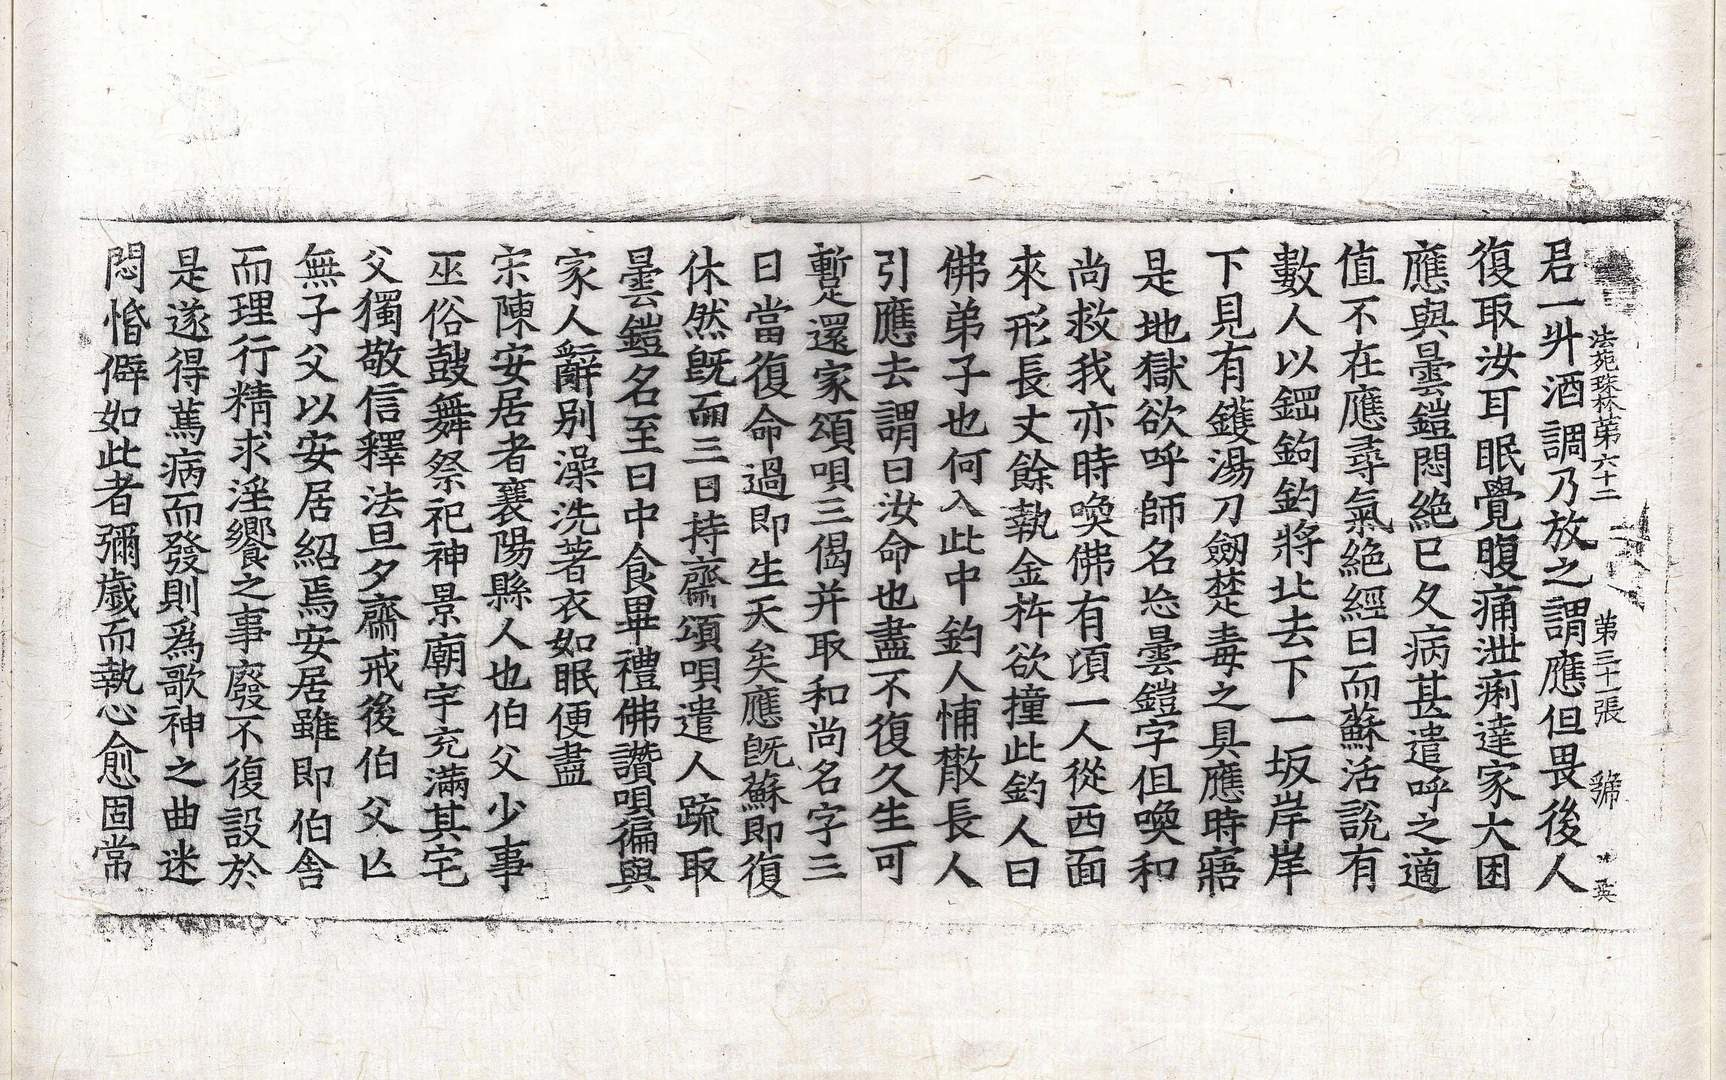 法苑珠林第六十二 第三十一張 號 英
君一斗酒調乃放之謂應但畏後人
復取汝耳眠覺腹痛泄痢達家大困
應與曇鎧悶絶已久病甚遣呼之適
值不在應尋氣絶經日而蘇活説有
數人以鈤鉤釣將北去下一坂岸岸
下見有鑊湯刀劒楚毒之具應時寤
是地獄欲呼師名忩曇鎧字但喚和
尚救我亦時喚佛有頃一人從西面
來形長丈餘執金杵欲撞此釣人曰
佛弟子也何入此中釣人怖散長人
引應去謂曰汝命也盡不復久生可
暫還家頌唄三偈并取和尚名字三
日當復命過即生天矣應既蘇即復
休然既而三日持齋頌唄遣人疏取
曇鎧名至日中食畢禮佛讚唄徧與
家人辭别澡洗著衣如眠便盡
宋陳安居者襄陽縣人也伯父少事
巫俗鼓舞祭祀神景廟宇充滿其宅
父獨敬信釋法旦夕齋戒後伯父亾
無子父以安居紹焉安居雖即伯舍
而理行精求淫饗之事廢不復設於
是遂得篤病而發則爲歌神之曲迷
悶惛僻如此者彌歳而執心愈固常